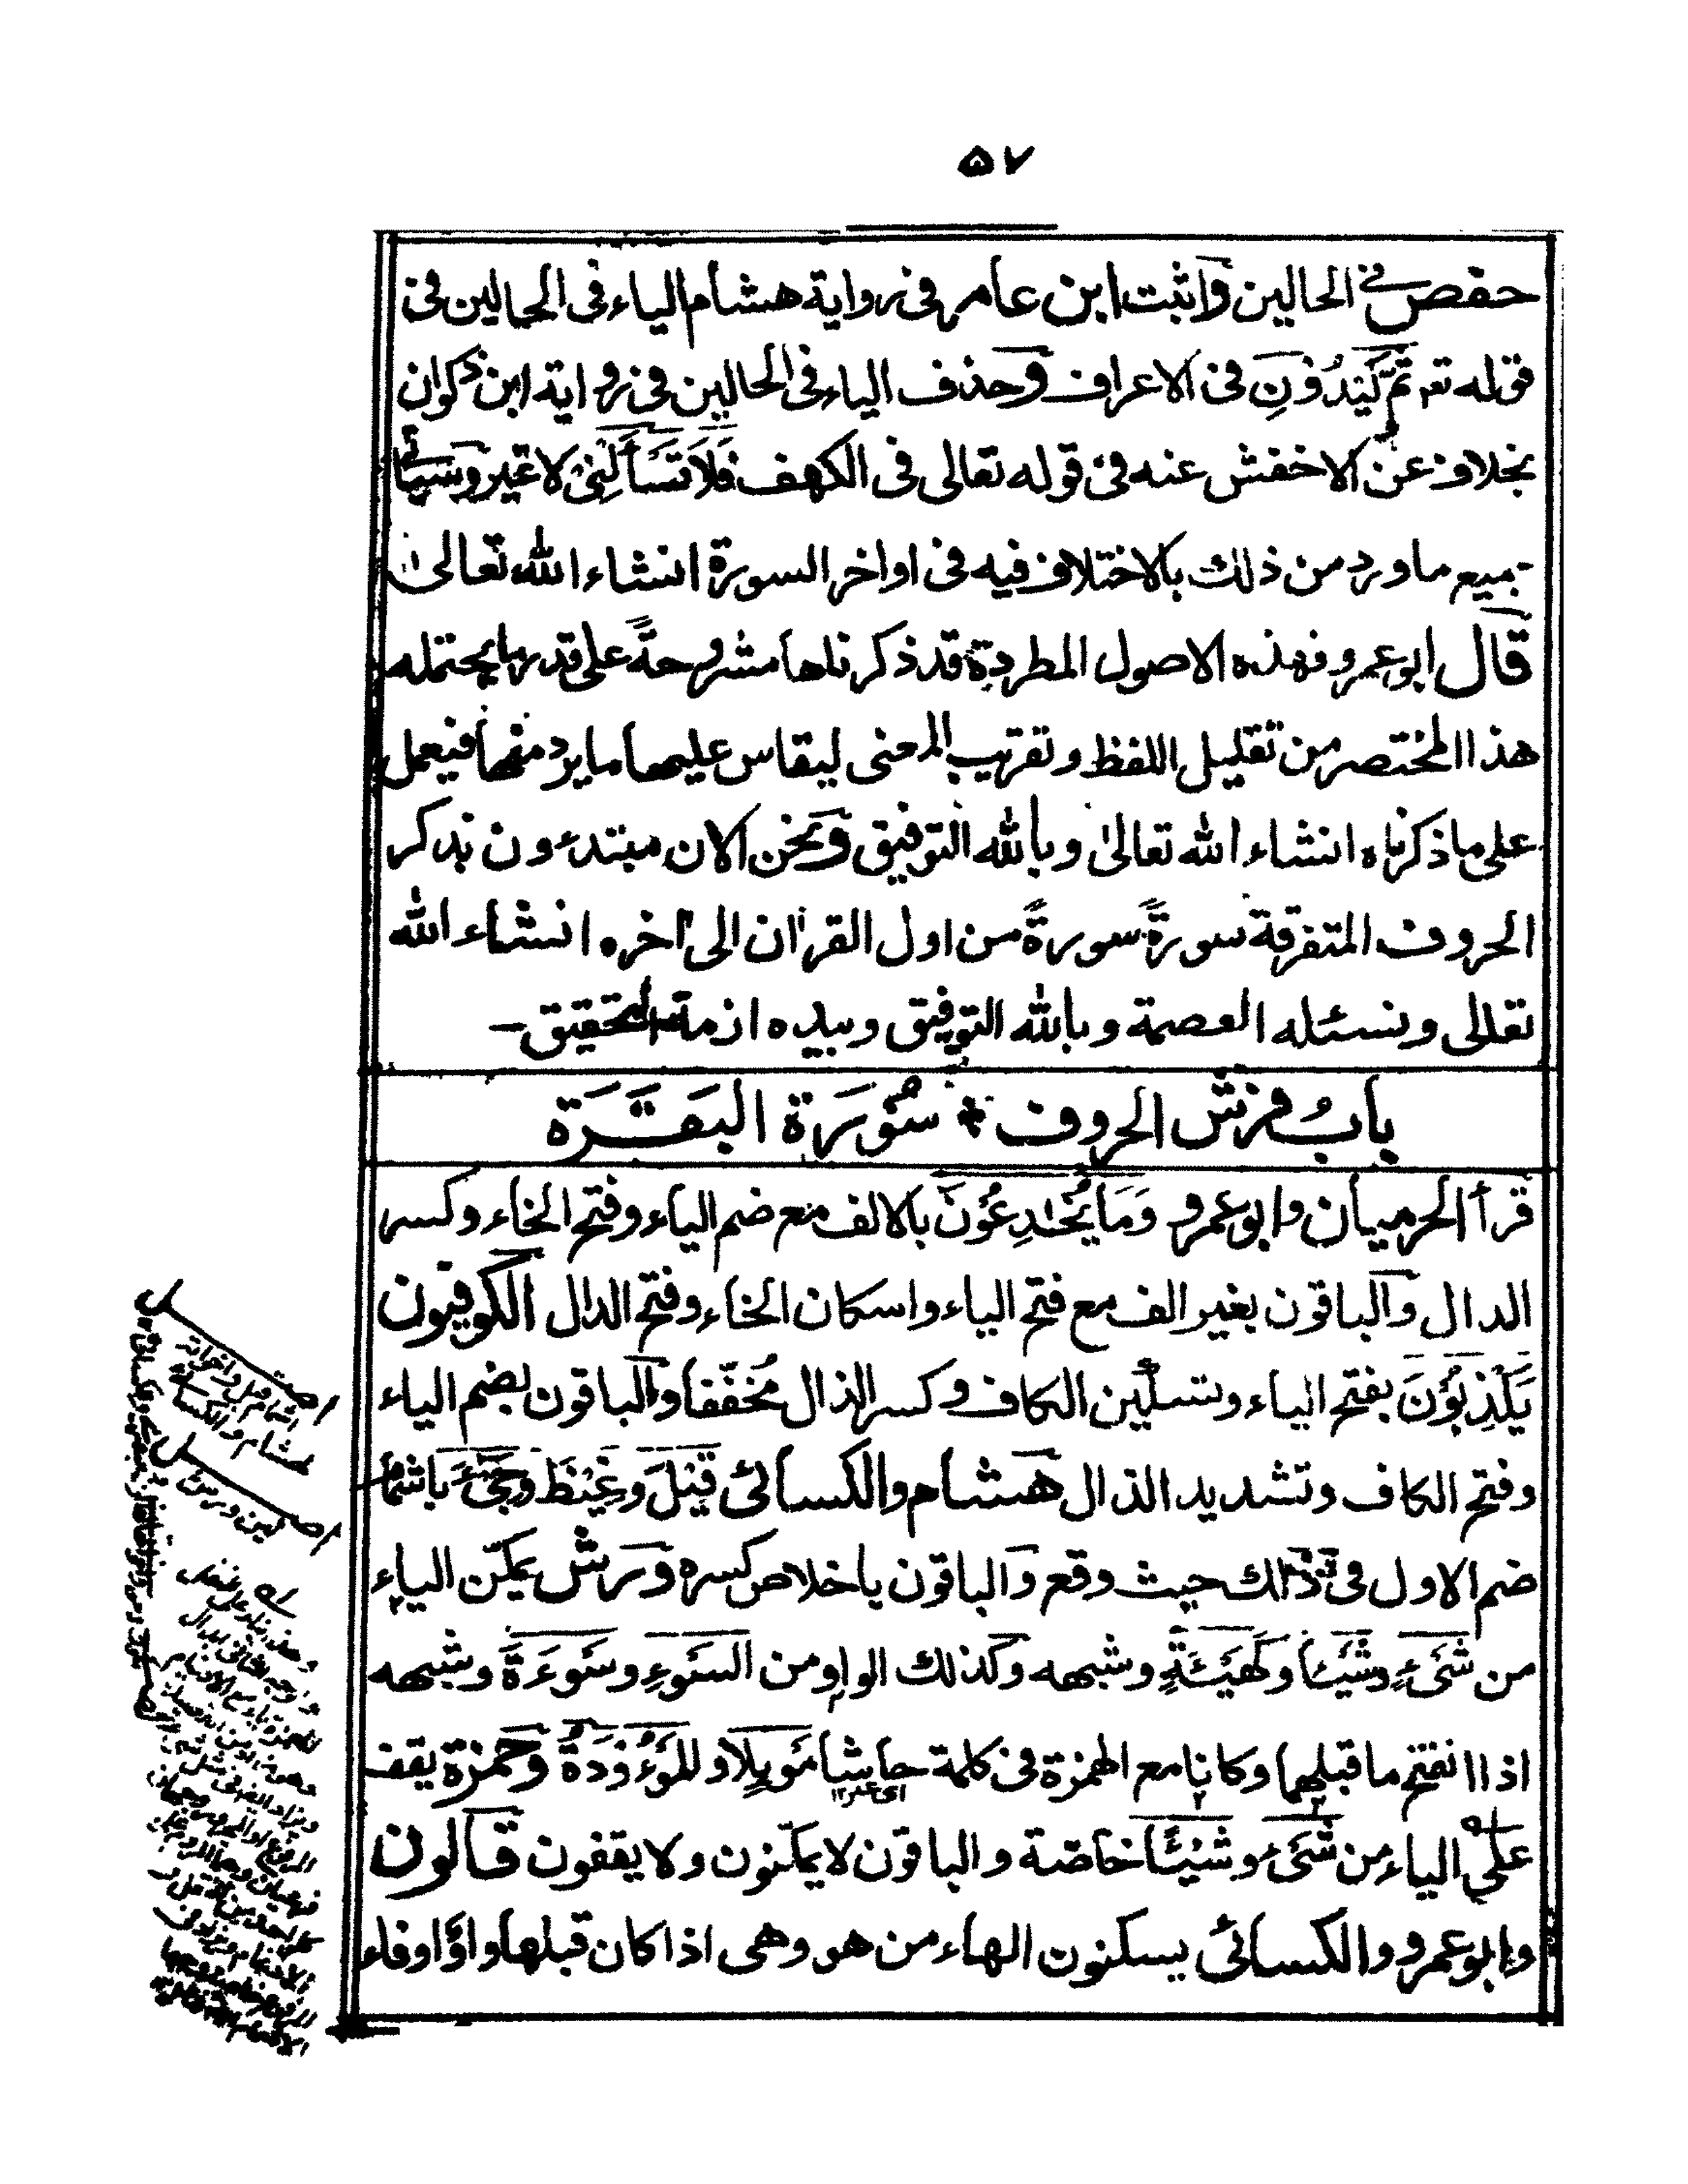 ۵۷
حفص في الحالين وَاثبت ابن عامر فى رواية هشام الياء فى الحالين فى
قوله تعر ثُمَّ كِيْدُوْنِ فى الاعراف وحذف الياء فى الحالين فى رواية ابن ذكوان
بخلاف عن الاخفش عنه فى قوله تعالى فى الكهف فَلَا تَسْأَلْنِىْ لا غير وسياتى
جميع ما ورد من ذلك بالاختلاف فيه فى اواخر السورة انشاء الله تعالىٰ
قال ابو عمرو فهذه الاصول المطردة قد ذكرناها مشروحةً على قدر ما يحتمله
هذا المختصر من تقليل اللفظ وتقريب المعنى ليقاس عليها ما يرد منها فيعمل
على ما ذكرناه انشاء الله تعالىٰ وبالله التوفيق وَنحن الان مبتدءون بذكر
الحروف المتفرقة سورةً سورةً من اول القران الى اخره انشاء الله
تعالى ونسئله العصمة وبالله التوفيق وبيده ازمة التحقيق -
بابُ فرش الحروف * سُوْرَة البَقَــرَة
قرأ الحرميان وابو عمرو وَمَا يُخٰدِعُوْنَ بالالف مع ضم الياء وفتح الخاء وكسر
الدال وَالباقون بغير الف مع فتح الياء واسكان الخاء وفتح الدال الكوفيون
يَكْذِبُوْنَ بفتح الياء وتسكين الكاف وكسر الذال مُخَفّفا والباقون بضم الياء
وفتح الكاف وتشديد الذال هشام والكسائى قِيْلَ وغِيْضَ وجِىْءَ باشمام
ضم الاول فى ذلك حيث وقع وَالباقون باخلاص كسره وَورش يمكّن الياء
من شَىْءٍ وشَيْئًا وكَهَيْئَةِ وشبهه وكذلك الواو من السَّوْءِ وسَوْءَةَ وشبهه
اذا انفتح ما قبلهما وكانا مع الهمزة فى كلمة حاشا مَوْئِلًا و الْمَوْءُوْدَةُ وحمزة يقف
على الياء من شَىْءٍ وشَيْئًا خاصّة والباقون لا يمكّنون ولا يقفون قالون
وابو عمرو والكسائى يسكنون الهاء من هو وهى اذا كان قبلها واوٌ او فاء